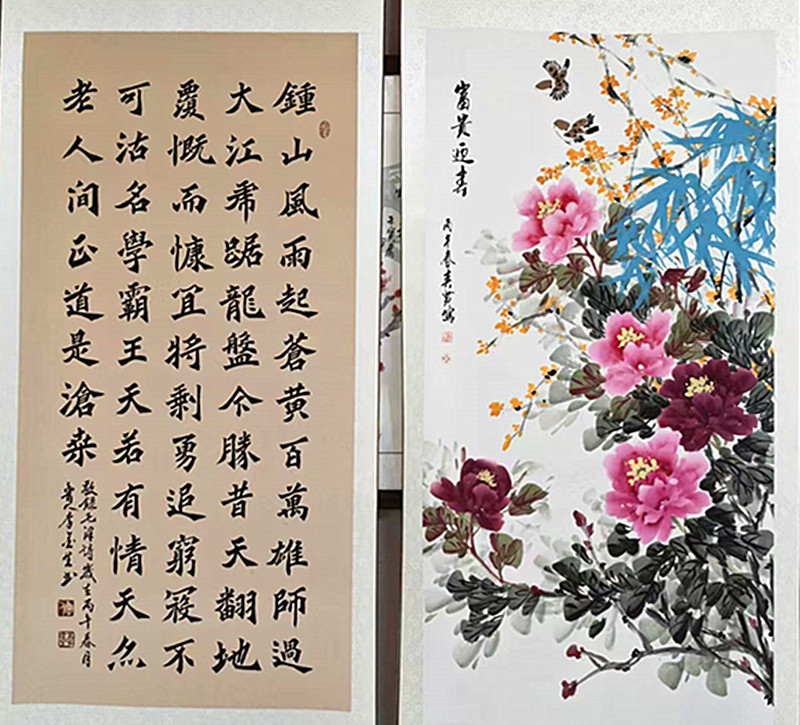 鍾山風雨起蒼黄百萬雄師過
大江虎踞龍盤今勝昔天翻地
覆慨而慷宜將剩勇追窮寇不
可沽名學霸王天若有情天亦
老人间正道是滄桑
敬録毛澤詩歲在丙午春月
富貴迎春
丙午春